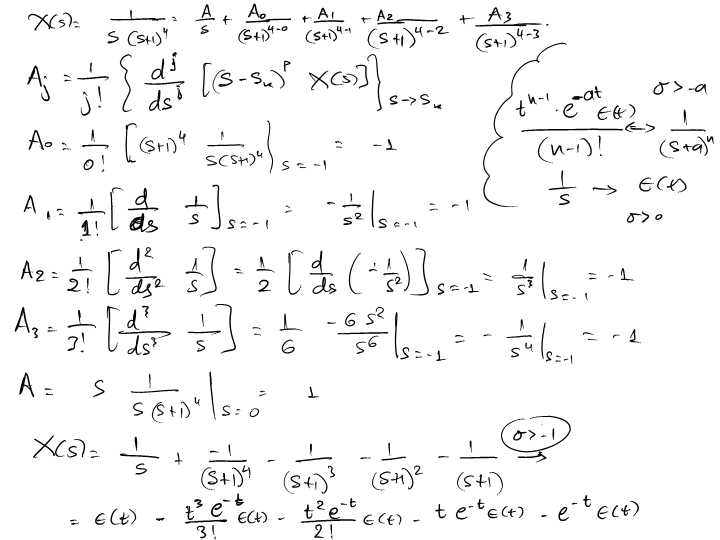 X(s) = 1/(s (s+1)^4) = A/s + A₀/(s+1)^(4-0) + A₁/(s+1)^(4-1) + A₂/(s+1)^(4-2) + A₃/(s+1)^(4-3).
A_j = 1/j! { d^j/ds^j [(s-s_k)^p X(s)] } s→s_k
t^(n-1) · e^(-at) ϵ(t) / (n-1)! ↔ 1/(s+a)^n σ>-a
1/s → ϵ(t)
σ>0
A₀ = 1/0! [ (s+1)^4 1/(s(s+1)^4) ] s=-1 = -1
A₁ = 1/1! [ d/ds 1/s ] s=-1 = -1/s² | s=-1 = -1
A₂ = 1/2! [ d²/ds² 1/s ] = 1/2 [ d/ds (-1/s²) ] s=-1 = 1/s³ | s=-1 = -1
A₃ = 1/3! [ d³/ds³ 1/s ] = 1/6 -6s²/s⁶ | s=-1 = - 1/s⁴ | s=-1 = -1
A = s 1/(s(s+1)^4) | s=0 = 1
X(s) = 1/s + -1/(s+1)^4 - 1/(s+1)^3 - 1/(s+1)^2 - 1/(s+1) σ>-1 →
= ϵ(t) - t³e^(-t)/3! ϵ(t) - t²e^(-t)/2! ϵ(t) - t e^(-t) ϵ(t) - e^(-t) ϵ(t)